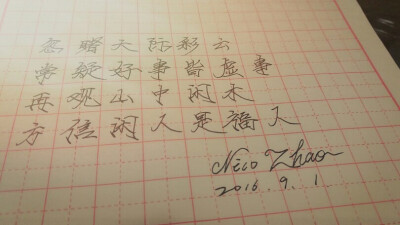 忽睹天际彩云
常疑好事皆虚事
再观山中闲木
方信闲人是福人
Nico Zhao
2016.9.1